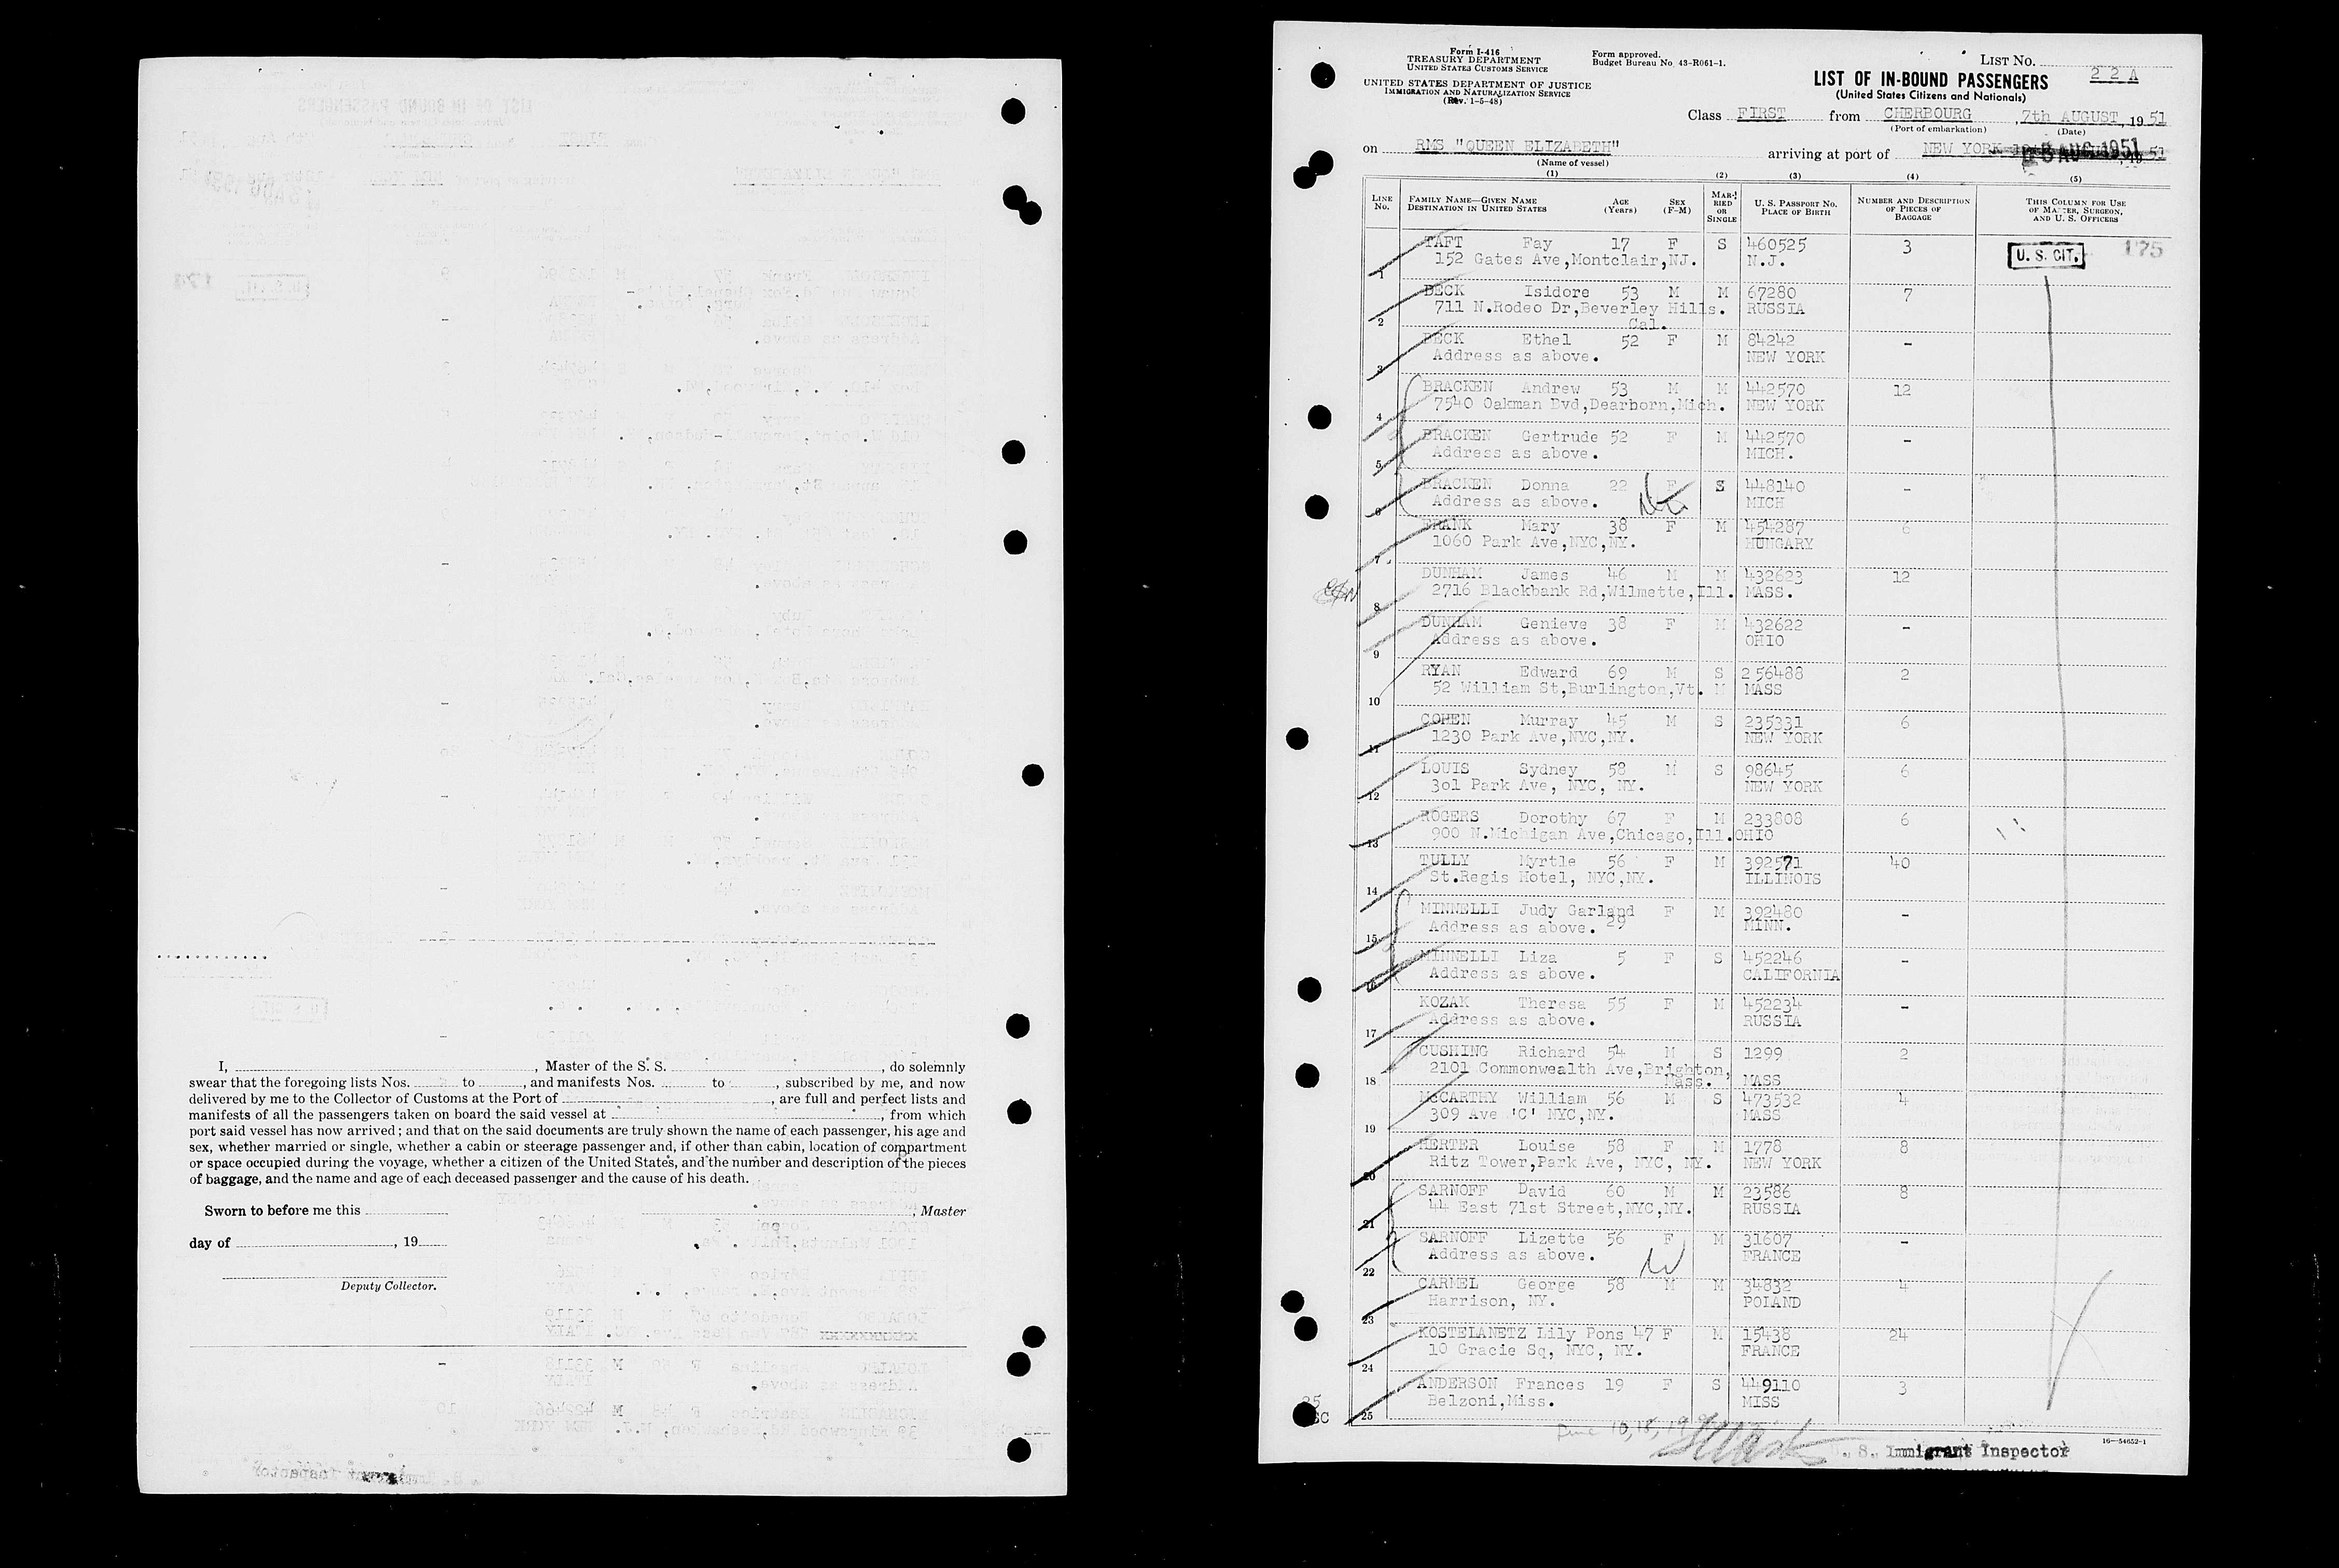 I, , Master of the S. S. , do solemnly
swear that the foregoing lists Nos. to , and manifests Nos. to , subscribed by me, and now
delivered by me to the Collector of Customs at the Port of , are full and perfect lists and
manifests of all the passengers taken on board the said vessel at , from which
port said vessel has now arrived; and that on the said documents are truly shown the name of each passenger, his age and
sex, whether married or single, whether a cabin or steerage passenger and, if other than cabin, location of compartment
or space occupied during the voyage, whether a citizen of the United States, and the number and description of the pieces
of baggage, and the name and age of each deceased passenger and the cause of his death.
Sworn to before me this , Master
day of , 19
Deputy Collector.
Form I-416
TREASURY DEPARTMENT
UNITED STATES CUSTOMS SERVICE
UNITED STATES DEPARTMENT OF JUSTICE
IMMIGRATION AND NATURALIZATION SERVICE
(Rev. 1-5-48)
Form approved.
Budget Bureau No. 43-R061-1.
LIST No.
22A
LIST OF IN-BOUND PASSENGERS
(United States Citizens and Nationals)
Class FIRST from CHERBOURG , 7th AUGUST, 1951
(Port of embarkation) (Date)
on RMS "QUEEN ELIZABETH" arriving at port of NEW YORK AUG 1951 51
(Name of vessel)
(1) (2) (3) (4) (5)
LINE No. FAMILY NAME—GIVEN NAME DESTINATION IN UNITED STATES AGE (Years) SEX (F-M) MARRIED OR SINGLE U. S. PASSPORT No. PLACE OF BIRTH NUMBER AND DESCRIPTION OF PIECES OF BAGGAGE THIS COLUMN FOR USE OF MASTER, SURGEON, AND U. S. OFFICERS
TAFT Fay 17 F S 460525 3 U. S. CIT. 175
1 152 Gates Ave,Montclair,NJ. N.J.
DECK Isidore 53 M M 67280 7
2 711 N.Rodeo Dr,Beverley Hills. RUSSIA
Cal.
DECK Ethel 52 F M 84242 -
3 Address as above. NEW YORK
BRACKEN Andrew 53 M M 442570 12
4 7540 Oakman Dvd,Dearborn,Mich. NEW YORK
BRACKEN Gertrude 52 F M 442570 -
5 Address as above. MICH.
BRACKEN Donna 22 F S 448140 -
6 Address as above. MICH
FRANK Mary 38 F M 454287 6
7 1060 Park Ave,NYC,NY. HUNGARY
DUNHAM James 46 M M 432623 12
8 2716 Blackbank Rd,Wilmette,Ill. MASS.
DUNHAM Genieve 38 F M 432622 -
9 Address as above. OHIO
RYAN Edward 69 M S 256488 2
10 52 William St,Burlington,Vt. M MASS
COHEN Murray 45 M S 235331 6
11 1230 Park Ave,NYC,NY. NEW YORK
LOUIS Sydney 58 M S 98645 6
12 3ol Park Ave, NYC, NY. NEW YORK
ROGERS Dorothy 67 F M 233808 6
13 900 N.Michigan Ave,Chicago,Ill. OHIO
TULLY Myrtle 56 F M 392571 40
14 St.Regis Hotel, NYC,NY. ILLINOIS
MINNELLI Judy Garland F M 392480 -
15 Address as above. 29 MINN.
MINNELLI Liza 5 F S 452246 -
16 Address as above. CALIFORNIA
KOZAK Theresa 55 F M 452234 -
17 Address as above. RUSSIA
CUSHING Richard 54 M S 1299 2
2101 Commonwealth Ave,Brighton,
18 Mass. MASS
McCARTHY William 56 M S 473532 4
19 309 Ave 'C' NYC,NY. MASS
HERTER Louise 58 F M 1778 8
20 Ritz Tower,Park Ave, NYC, NY. NEW YORK
SARNOFF David 60 M M 23586 8
21 44 East 71st Street,NYC,NY. RUSSIA
SARNOFF Lizette 56 F M 31607 -
22 Address as above. FRANCE
CARMEL George 58 M M 34832 4
23 Harrison, NY. POLAND
KOSTELANETZ Lily Pons 47 F M 15438 24
24 10 Gracie Sq, NYC, NY. FRANCE
ANDERSON Frances 19 F S 449110 3
25 Belzoni,Miss. MISS
16—54652-1
S. Immigrant Inspector